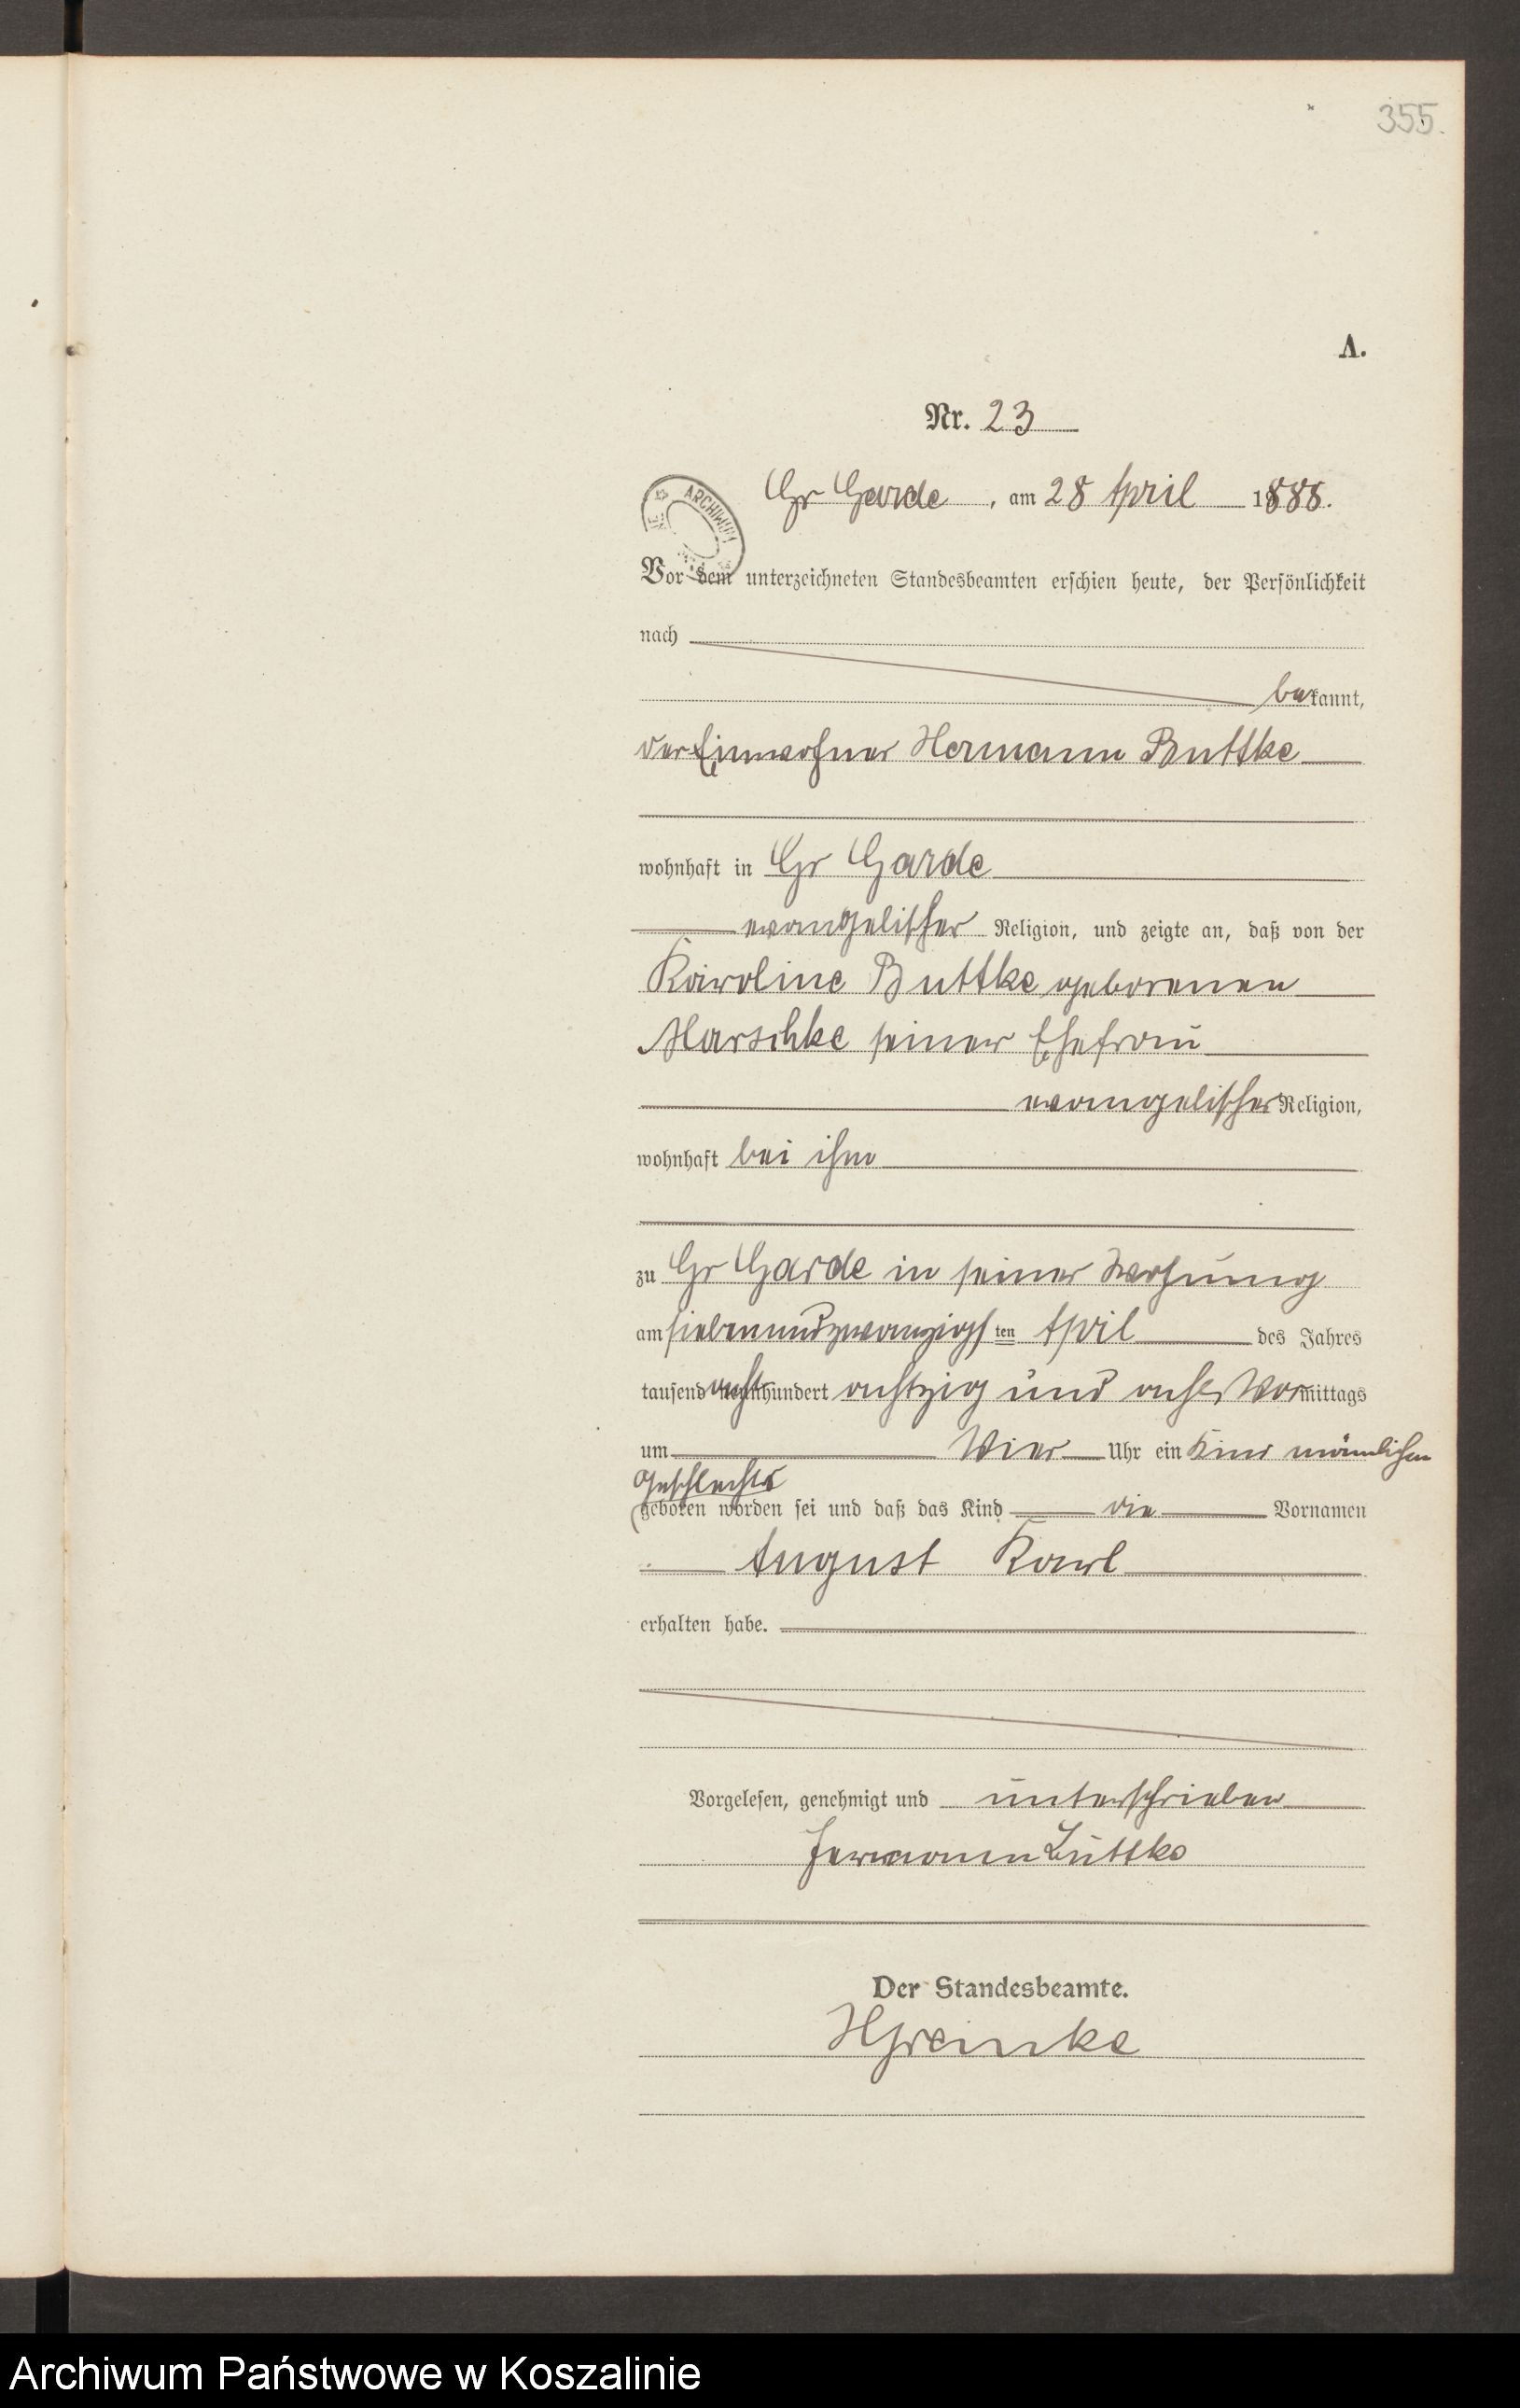 355.
A.
Nr. 23
ARCHIWUM
Gr Garde, am 28 April 1888.
Vor dem unterzeichneten Standesbeamten erschien heute, der Persönlichkeit
nach
bekannt,
der Einwohner Hermann Buttke
wohnhaft in Gr Garde
evangelischer Religion, und zeigte an, daß von der
Karoline Buttke geborenen
Marschke seiner Ehefrau
evangelischer Religion,
wohnhaft bei ihm
zu Gr Garde in seiner Wohnung
am siebenundzwanzigsten April des Jahres
tausend acht hundert achtzig und acht Vormittags
um Vier Uhr ein Kind männlichen
Geschlechts
geboren worden sei und daß das Kind die Vornamen
August Karl
erhalten habe.
Vorgelesen, genehmigt und unterschrieben
Hermann Buttke
Der Standesbeamte.
HGreinke
Archiwum Państwowe w Koszalinie